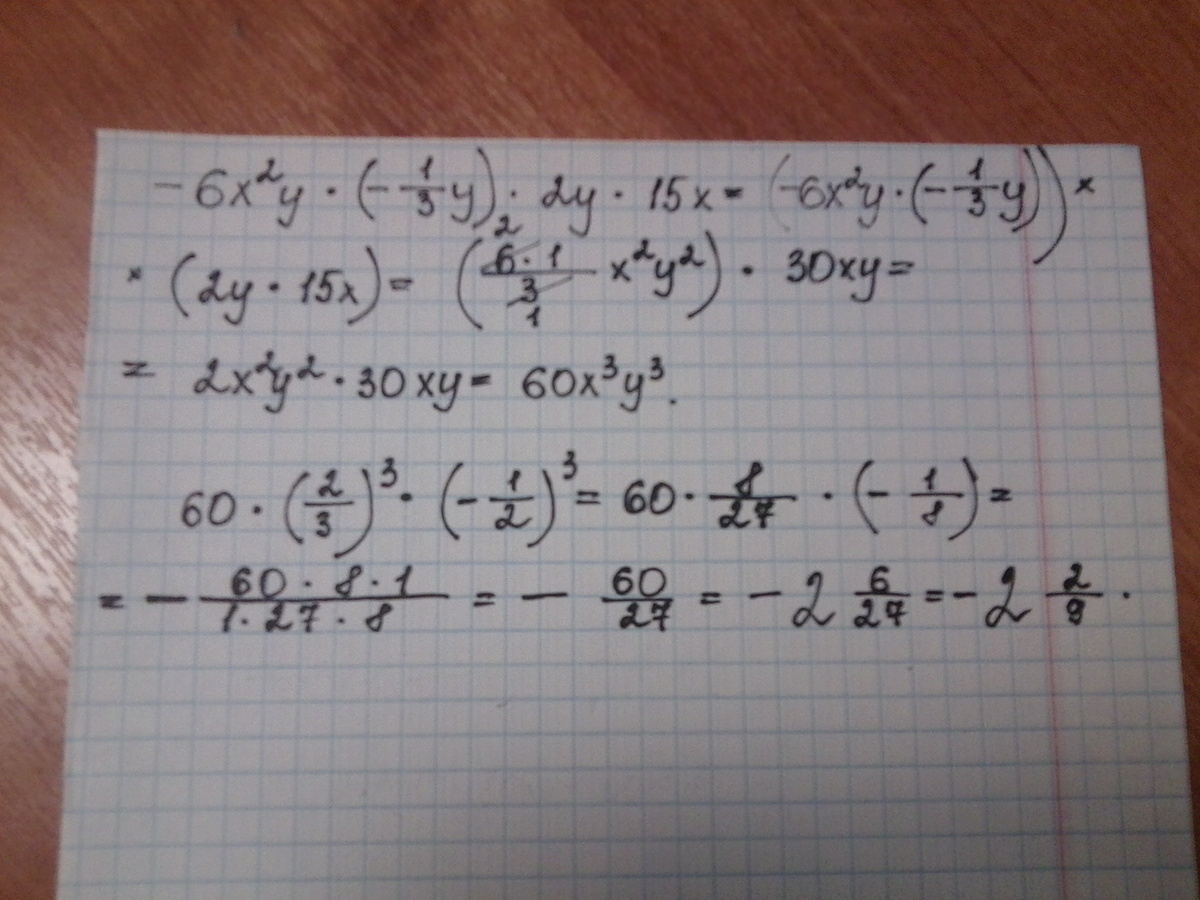 -6x²y · (-1/3 y) · 2y · 15x = (-6x²y · (-1/3 y)) ×
× (2y · 15x) = (6 · 1/3 x²y²) · 30xy = 2 1
= 2x²y² · 30xy = 60x³y³.
60 · (2/3)³ · (-1/2)³ = 60 · 8/27 · (-1/8) =
= - 60 · 8 · 1/1 · 27 · 8 = - 60/27 = - 2 6/27 = - 2 2/9 .